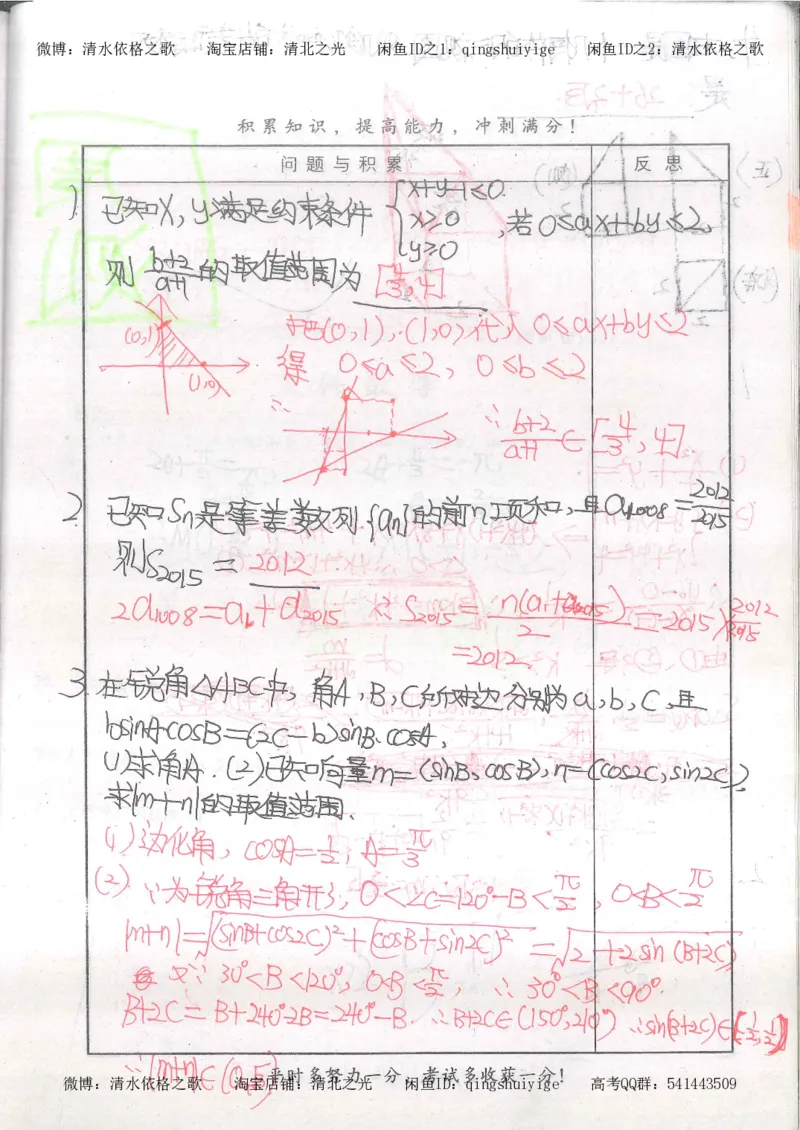 微博: 清水依格之歌 淘宝店铺: 清北之光 闲鱼ID之1: qingshuiyige 闲鱼ID之2: 清水依格之歌
积累知识，提高能力，冲刺满分!
问题与积累 反思
1. 已知x, y满足约束条件 {x+y-1≤0. x≥0 y≥0 , 若0≤ax+by≤2,
则 (b+2)/(a+1) 的取值范围为 [4/3, 4]
把(0,1), (1,0)代入 0≤ax+by≤2
(0,1)
得 0≤a≤2, 0≤b≤2
(1,0)
∴ (b+2)/(a+1) ∈ [4/3, 4]
2. 已知Sn是等差数列{an}的前n项和, 且a1008 = 2012/2015
则S2015 = 2012
2a1008=a1+a2015 S2015= n(a1+a2015)/2 =2015×2012/2015
=2012.
3. 在锐角△ABC中, 角A, B, C所对边分别为a, b, c, 且
bsinA·cosB=(2c-b)sinB·cosA,
(1)求角A. (2)已知向量m=(sinB, cosB), n=(cos2C, sin2C),
求|m+n|的取值范围.
(1)边化角, cosA=1/2, A=π/3
(2) ∵为锐角三角形, 0<∠C=120°-B<π/2, 0<B<π/2
|m+n|=√((sinB+cos2C)²+(cosB+sin2C)²) =√(2+2sin(B+2C))
又∵ 30°<B<120°, 0<B<π/2, ∴ 30°<B<90°.
B+2C= B+240°-2B=240°-B. ∴B+2C∈(150°,210°) ∴sin(B+2C)∈(-1/2,1/2)
平时多努力一分，考试多收获一分!
微博: 清水依格之歌 淘宝店铺: 清北之光 闲鱼ID之1: qingshuiyige 高考QQ群: 541443509